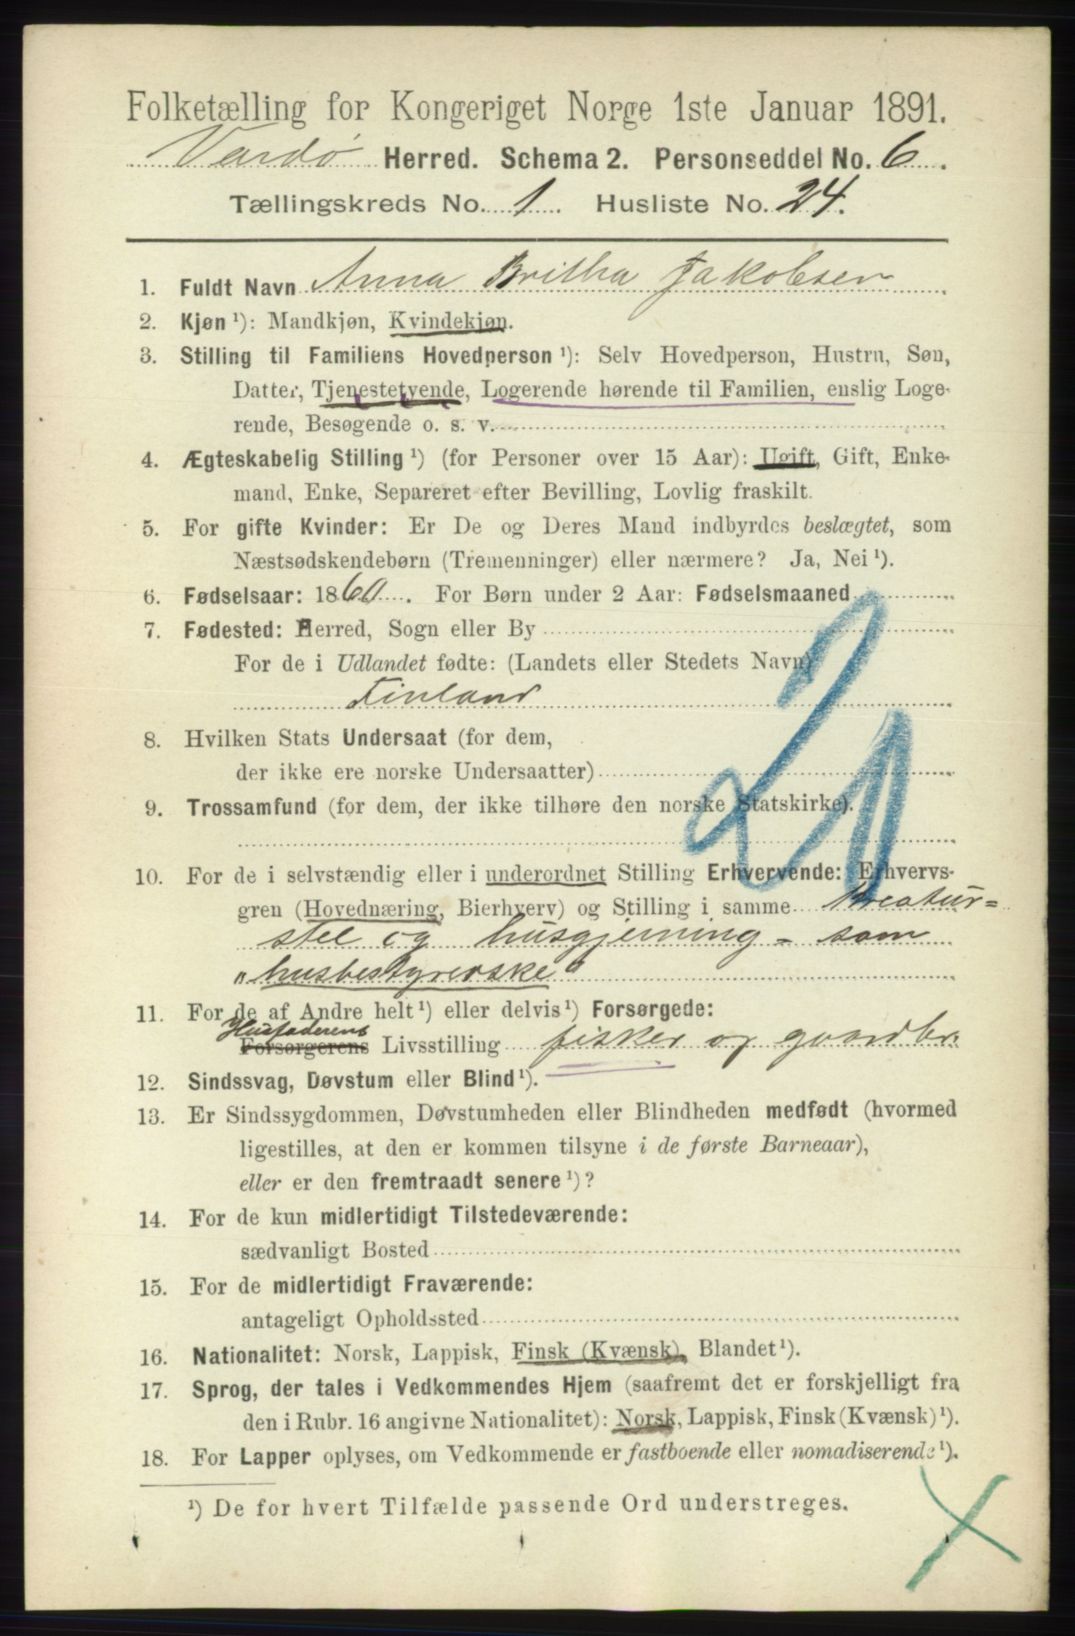 Folketælling for Kongeriget Norge 1ste Januar 1891.
Vardø Herred. Schema 2. Personseddel No. 6.
Tællingskreds No. 1. Husliste No. 24.
1. Fuldt Navn Anna Britha Jakobsen
2. Kjøn ¹): Mandkjøn, Kvindekjøn.
3. Stilling til Familiens Hovedperson ¹): Selv Hovedperson, Hustru, Søn,
Datter, Tjenestetyende, Logerende hørende til Familien, enslig Loge-
rende, Besøgende o. s. v.
4. Ægteskabelig Stilling ¹) (for Personer over 15 Aar): Ugift, Gift, Enke-
mand, Enke, Separeret efter Bevilling, Lovlig fraskilt.
5. For gifte Kvinder: Er De og Deres Mand indbyrdes beslægtet, som
Næstsødskendebørn (Tremenninger) eller nærmere? Ja, Nei ¹).
6. Fødselsaar: 1860. For Børn under 2 Aar: Fødselsmaaned
7. Fødested: Herred, Sogn eller By
For de i Udlandet fødte: (Landets eller Stedets Navn)
Finland
20
8. Hvilken Stats Undersaat (for dem,
der ikke ere norske Undersaatter)
9. Trossamfund (for dem, der ikke tilhøre den norske Statskirke).
10. For de i selvstændig eller i underordnet Stilling Erhvervende: Erhvervs-
gren (Hovednæring, Bierhverv) og Stilling i samme Kreatur=
stel og husgjerning - som
"husbestyrerske"
11. For de af Andre helt ¹) eller delvis ¹) Forsørgede:
Husfaderens
Forsørgerens Livsstilling fisker og gaardbr.
12. Sindssvag, Døvstum eller Blind ¹).
13. Er Sindssygdommen, Døvstumheden eller Blindheden medfødt (hvormed
ligestilles, at den er kommen tilsyne i de første Barneaar),
eller er den fremtraadt senere ¹)?
14. For de kun midlertidigt Tilstedeværende:
sædvanligt Bosted
15. For de midlertidigt Fraværende:
antageligt Opholdssted
16. Nationalitet: Norsk, Lappisk, Finsk (Kvænsk), Blandet ¹).
17. Sprog, der tales i Vedkommendes Hjem (saafremt det er forskjelligt fra
den i Rubr. 16 angivne Nationalitet): Norsk, Lappisk, Finsk (Kvænsk) ¹).
18. For Lapper oplyses, om Vedkommende er fastboende eller nomadiserende ¹).
¹) De for hvert Tilfælde passende Ord understreges.